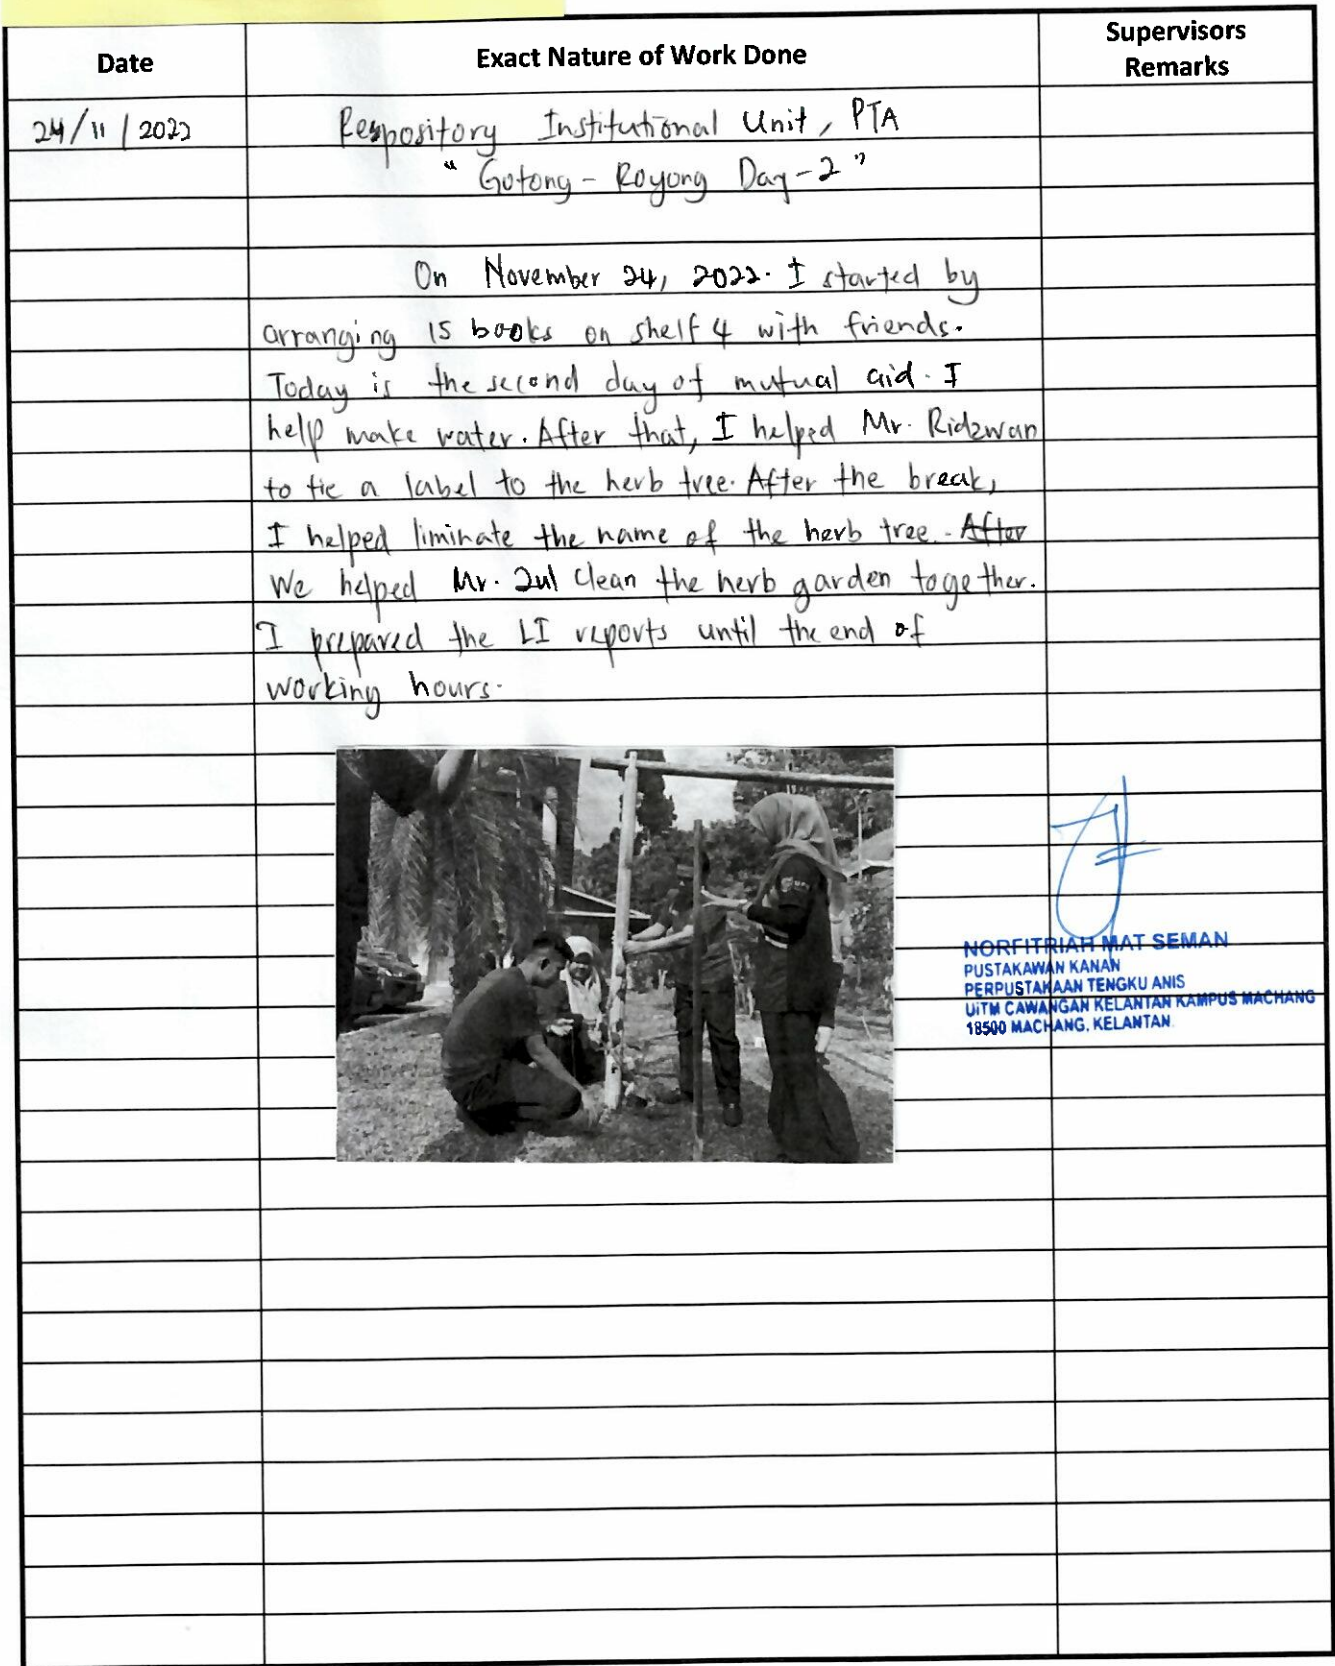 Date
Exact Nature of Work Done
Supervisors
Remarks
24/11/2022
Respository Institutional Unit, PTA
"Gotong-Royong Day-2"
On November 24, 2022. I started by
arranging 15 books on shelf 4 with friends.
Today is the second day of mutual aid. I
help make water. After that, I helped Mr. Ridzwan
to tie a label to the herb tree. After the break,
I helped liminate the name of the herb tree. After
We helped Mr. Zul clean the herb garden together.
I prepared the LI reports until the end of
working hours.
NORFITRIAH MAT SEMAN
PUSTAKAWAN KANAN
PERPUSTAKAAN TENGKU ANIS
UiTM CAWANGAN KELANTAN KAMPUS MACHANG
18500 MACHANG, KELANTAN